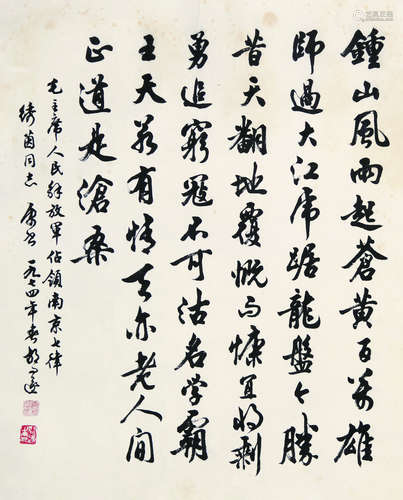 鍾山風雨起蒼黄百萬雄
師過大江虎踞龍盤今勝
昔天翻地覆慨而慷宜將剩
勇追窮寇不可沽名学霸
王天若有情天亦老人間
正道是滄桑
毛主席人民解放軍佔領南京七律
绮茵同志 属書 一九七四年春